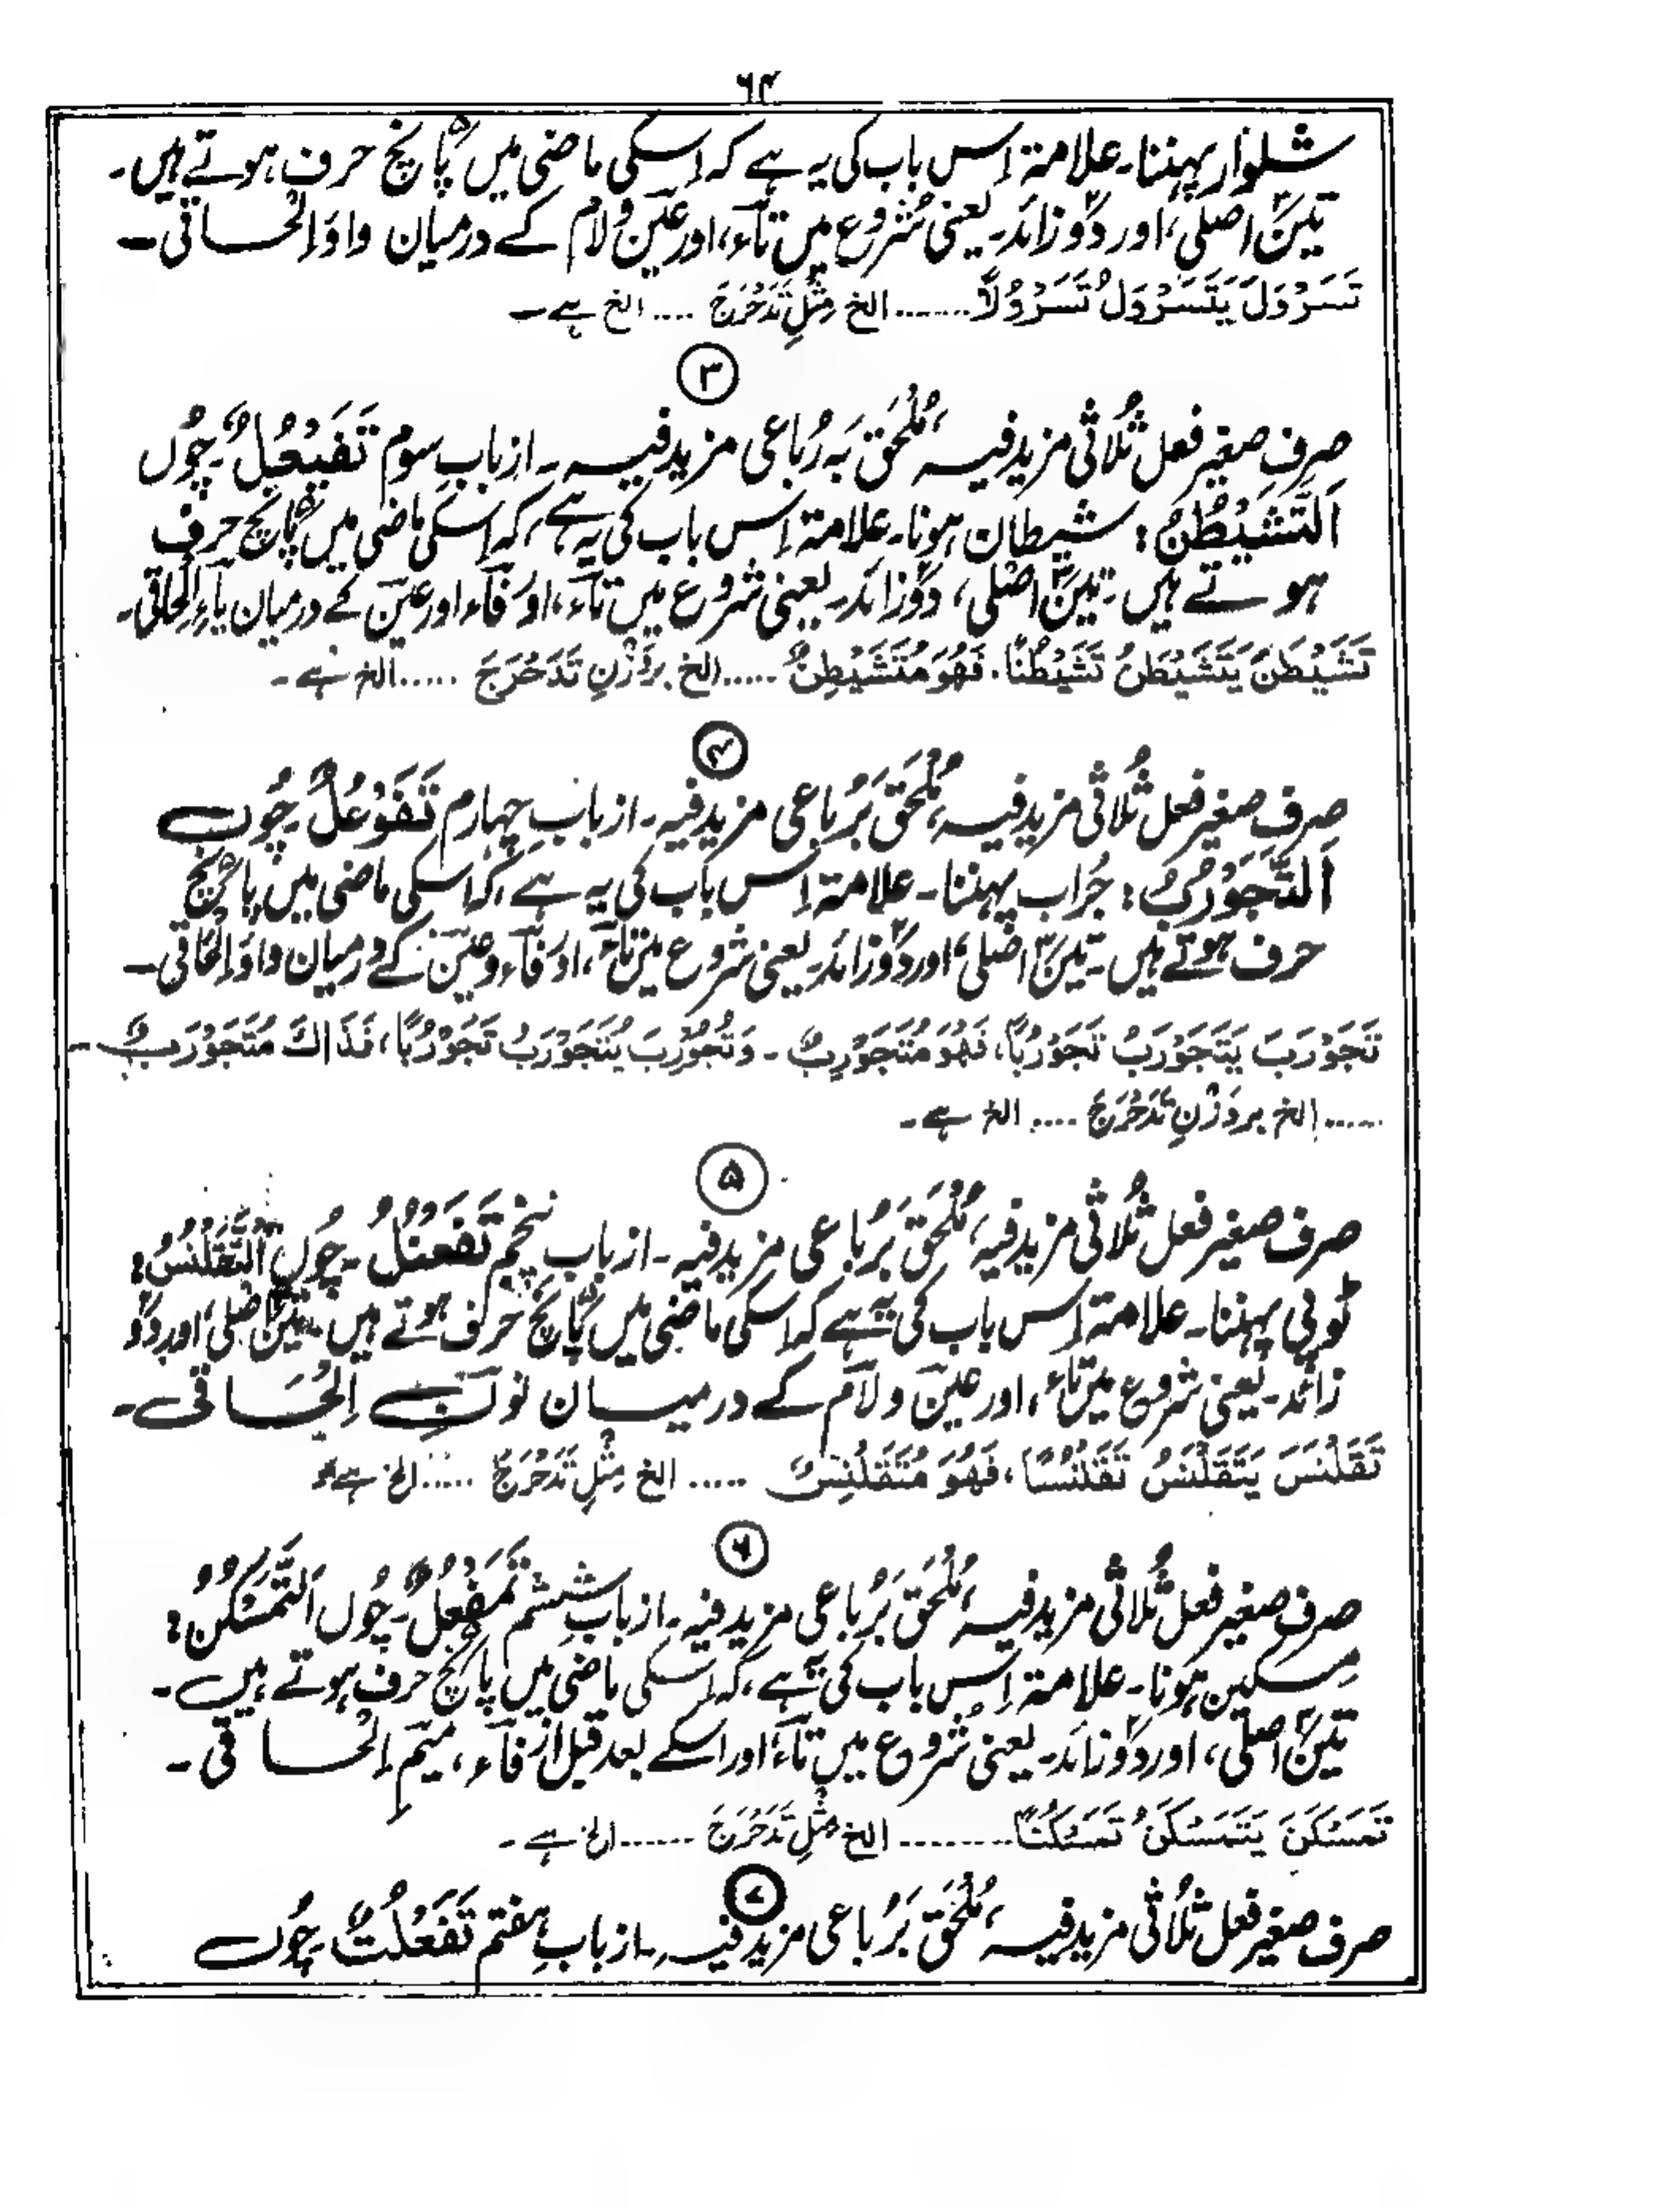 ۶۴
شلوار پہننا۔ علامة اِس باب کی یہ ہے کہ اِسکی ماضی میں پانچ حرف ہوتے ہیں۔
تین اصلی، اور دو زائد۔ یعنی شُروع میں تاء، اور عین و لام کے درمیان واوِ اِلحاقی۔
تَسَرْوَلَ يَتَسَرْوَلُ تَسَرْوُلًا ....... الخ مِثْلِ تَدَحْرَجَ .... الخ ہے۔
۳
صرفِ صغیر فعل ثُلاثی مزید فیہ، مُلْحَق بَہ رُباعی مزید فیہ۔ از بابِ سوم تَفَيْعُلٌ، چُوں
اَلتَّشَيْطُنُ: شیطان ہونا۔ علامة اِس باب کی یہ ہے، کہ اِسکی ماضی میں پانچ حرف
ہوتے ہیں۔ تین اصلی، دو زائد۔ یعنی شروع میں تاء، اور فاء اور عین کے درمیان یاءِ اِلحاقی۔
تَشَيْطَنَ يَتَشَيْطَنُ تَشَيْطُنًا، فَهُوَ مُتَشَيْطِنٌ ..... الخ بروَزْنِ تَدَحْرَجَ ..... الخ ہے۔
۴
صرفِ صغیر فعل ثُلاثی مزید فیہ، مُلْحَق بَرُباعی مزید فیہ۔ از بابِ چہارم تَفَوْعُلٌ۔ چُوں
اَلتَّجَوْرُبُ: جُراب پہننا۔ علامة اِس باب کی یہ ہے، کہ اِسکی ماضی میں پانچ
حرف ہوتے ہیں۔ تین اصلی، اور دو زائد۔ یعنی شروع میں تاء، اور فاء و عین کے درمیان واوِ اِلحاقی۔
تَجَوْرَبَ يَتَجَوْرَبُ تَجَوْرُبًا، فَهُوَ مُتَجَوْرِبٌ۔ وَتُجُوْرِبَ يُتَجَوْرَبُ تَجَوْرُبًا، فَذَاكَ مُتَجَوْرَبٌ۔
..... الخ بروَزْنِ تَدَحْرَجَ .... الخ ہے۔
۵
صرف صغیر فعل ثُلاثی مزید فیہ، مُلْحَق بَرُباعی مزید فیہ۔ از بابِ پنجم تَفَعْنُلٌ۔ چُوں اَلتَّقَلْنُسُ:
ٹوپی پہننا۔ علامة اِس باب کی یہ ہے کہ اِسکی ماضی میں پانچ حرف ہوتے ہیں۔ تین اصلی، اور دو
زائد۔ یعنی شروع میں تاء، اور عین و لام کے درمیان نونِ اِلحاقی۔
تَقَلْنَسَ يَتَقَلْنَسُ تَقَلْنُسًا، فَهُوَ مُتَقَلْنِسٌ ..... الخ مِثْلِ تَدَحْرَجَ ..... الخ ہے۔
۶
صرف صغیر فعل ثُلاثی مزید فیہ، مُلْحَق بَرُباعی مزید فیہ۔ از بابِ ششم تَمَفْعُلٌ۔ چُوں اَلتَّمَسْكُنُ:
مِسکین ہونا۔ علامة اِس باب کی یہ ہے، کہ اِسکی ماضی میں پانچ حرف ہوتے ہیں۔
تین اصلی، اور دو زائد۔ یعنی شُروع میں تاء، اور اسکے بعد قبل از فاء، میمِ اِلحاقی۔
تَمَسْكَنَ يَتَمَسْكَنُ تَمَسْكُنًا ........ الخ مِثْلِ تَدَحْرَجَ ...... الخ ہے۔
۷
صرف صغیر فعل ثُلاثی مزید فیہ، مُلْحَق بَرُباعی مزید فیہ۔ از بابِ ہفتم تَفَعْلُتٌ۔ چُوں